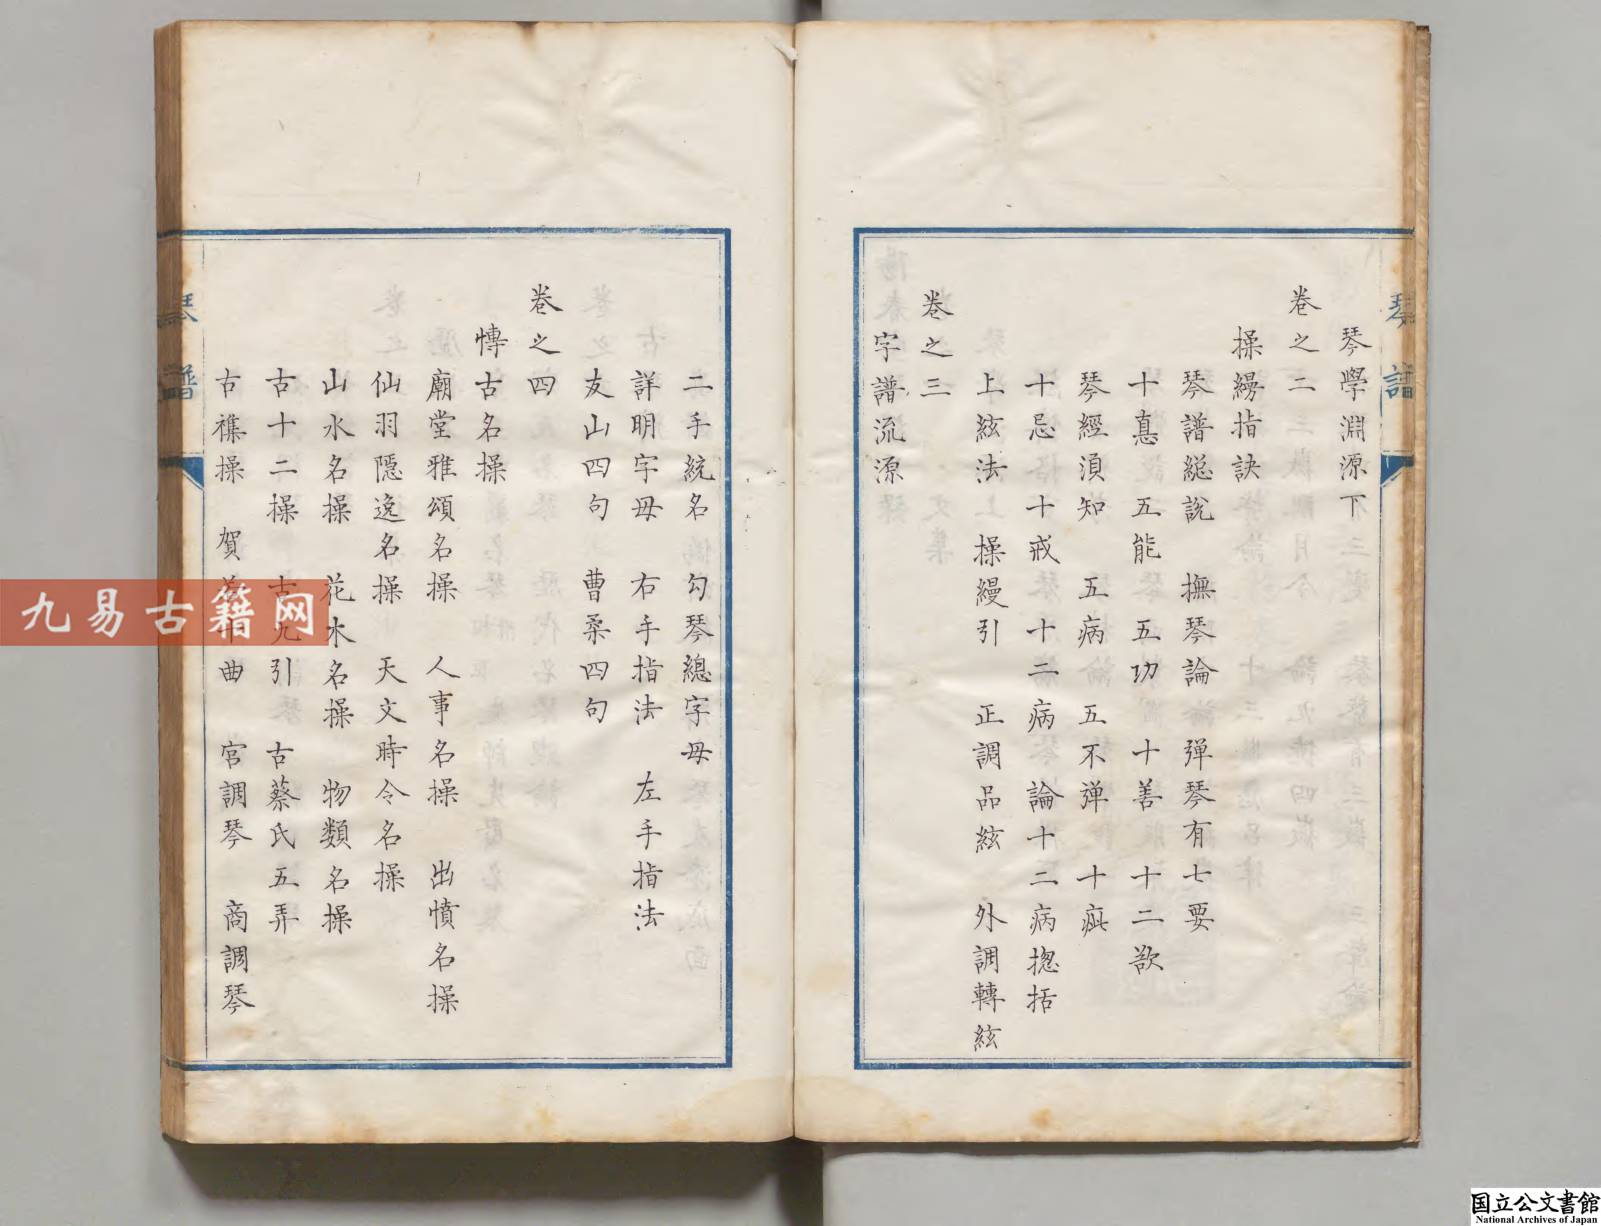 琴學淵源下
卷之二
操縵指訣
琴譜総說 撫琴論 弹琴有七要
十惪 五能 五功 十善 十二欲
琴經湏知 五病 五不弹 十疵
十忌十戒十二病 論十二病揔括
上絃法 操縵引 正調品絃 外調轉絃
卷之三
字譜流源
二手統名 勾琴總字母
詳明字母 右手指法 左手指法
友山四句 曹柔四句
卷之四
傳古名操
廟堂雅頌名操 人事名操 出憤名操
仙羽隱逸名操 天文時令名操
山水名操 花木名操 物類名操
古十二操 古九引 古蔡氏五弄
古襍操 賀 曲 宮調琴 商調琴
琴譜
琴譜
九易古籍网
国立公文書館
National Archives of Japan